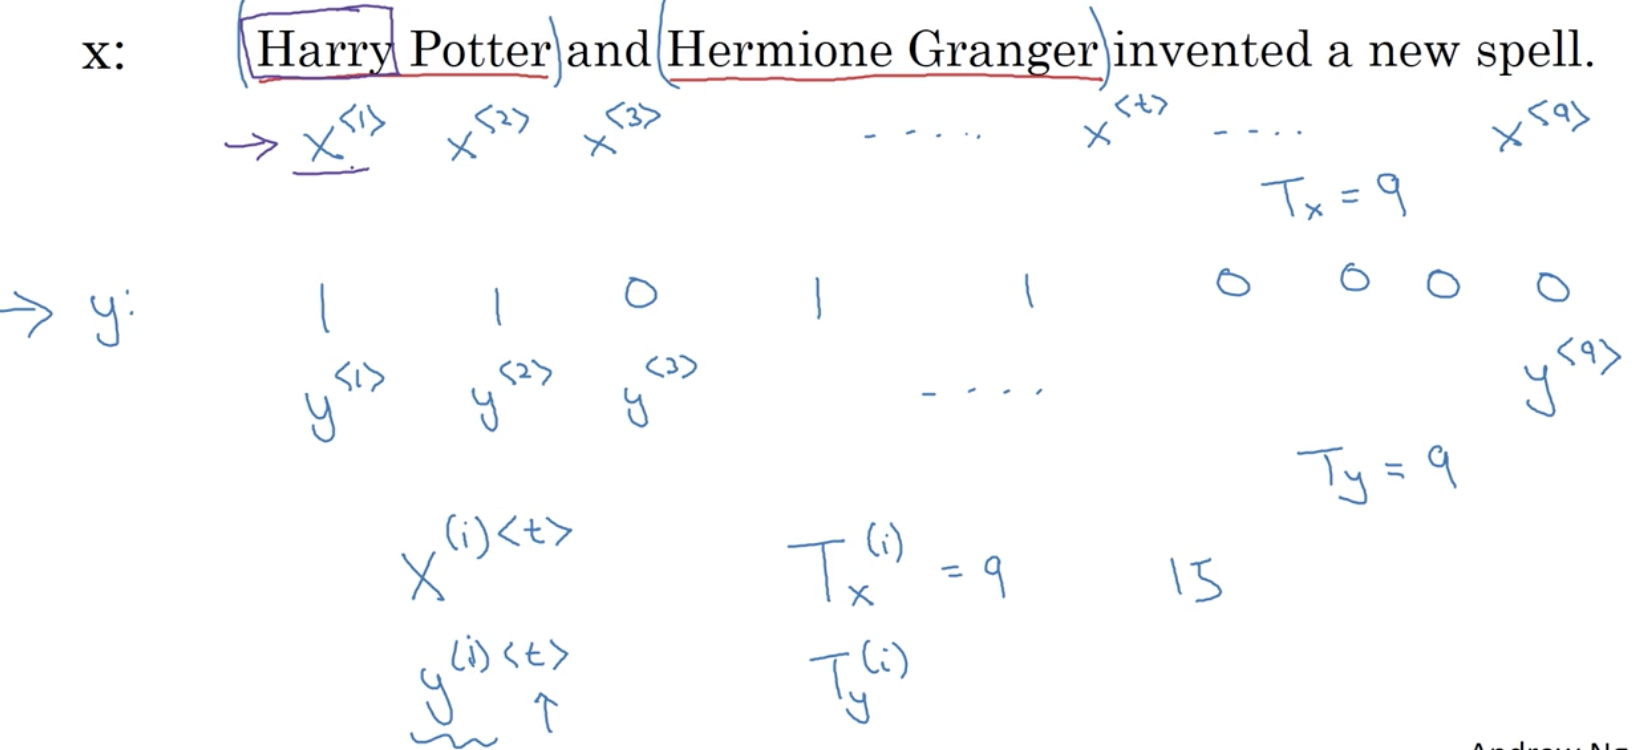 x: Harry Potter and Hermione Granger invented a new spell.
→ x<1> x<2> x<3> ----- x<t> ---- x<9>
Tx = 9
→ y: 1 1 0 1 1 0 0 0 0
y<1> y<2> y<3> ---- y<9>
Ty = 9
X(i)<t> Tx(i) = 9 15
y(i)<t> Ty(i)
↑
Andrew